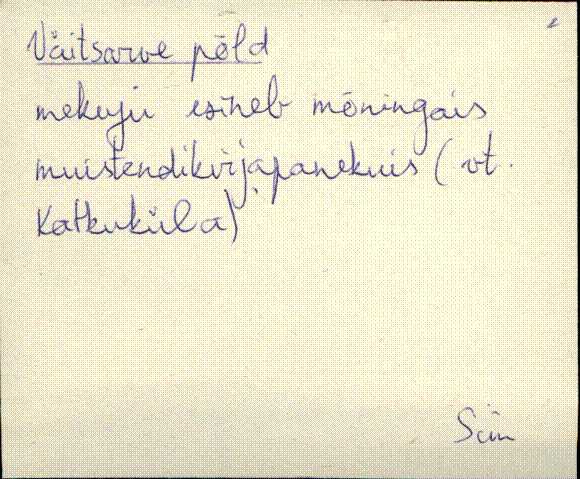 Väitsarve põld
esineb mõningais
muistendikirjapanekuis (vt.
Katkuküla)